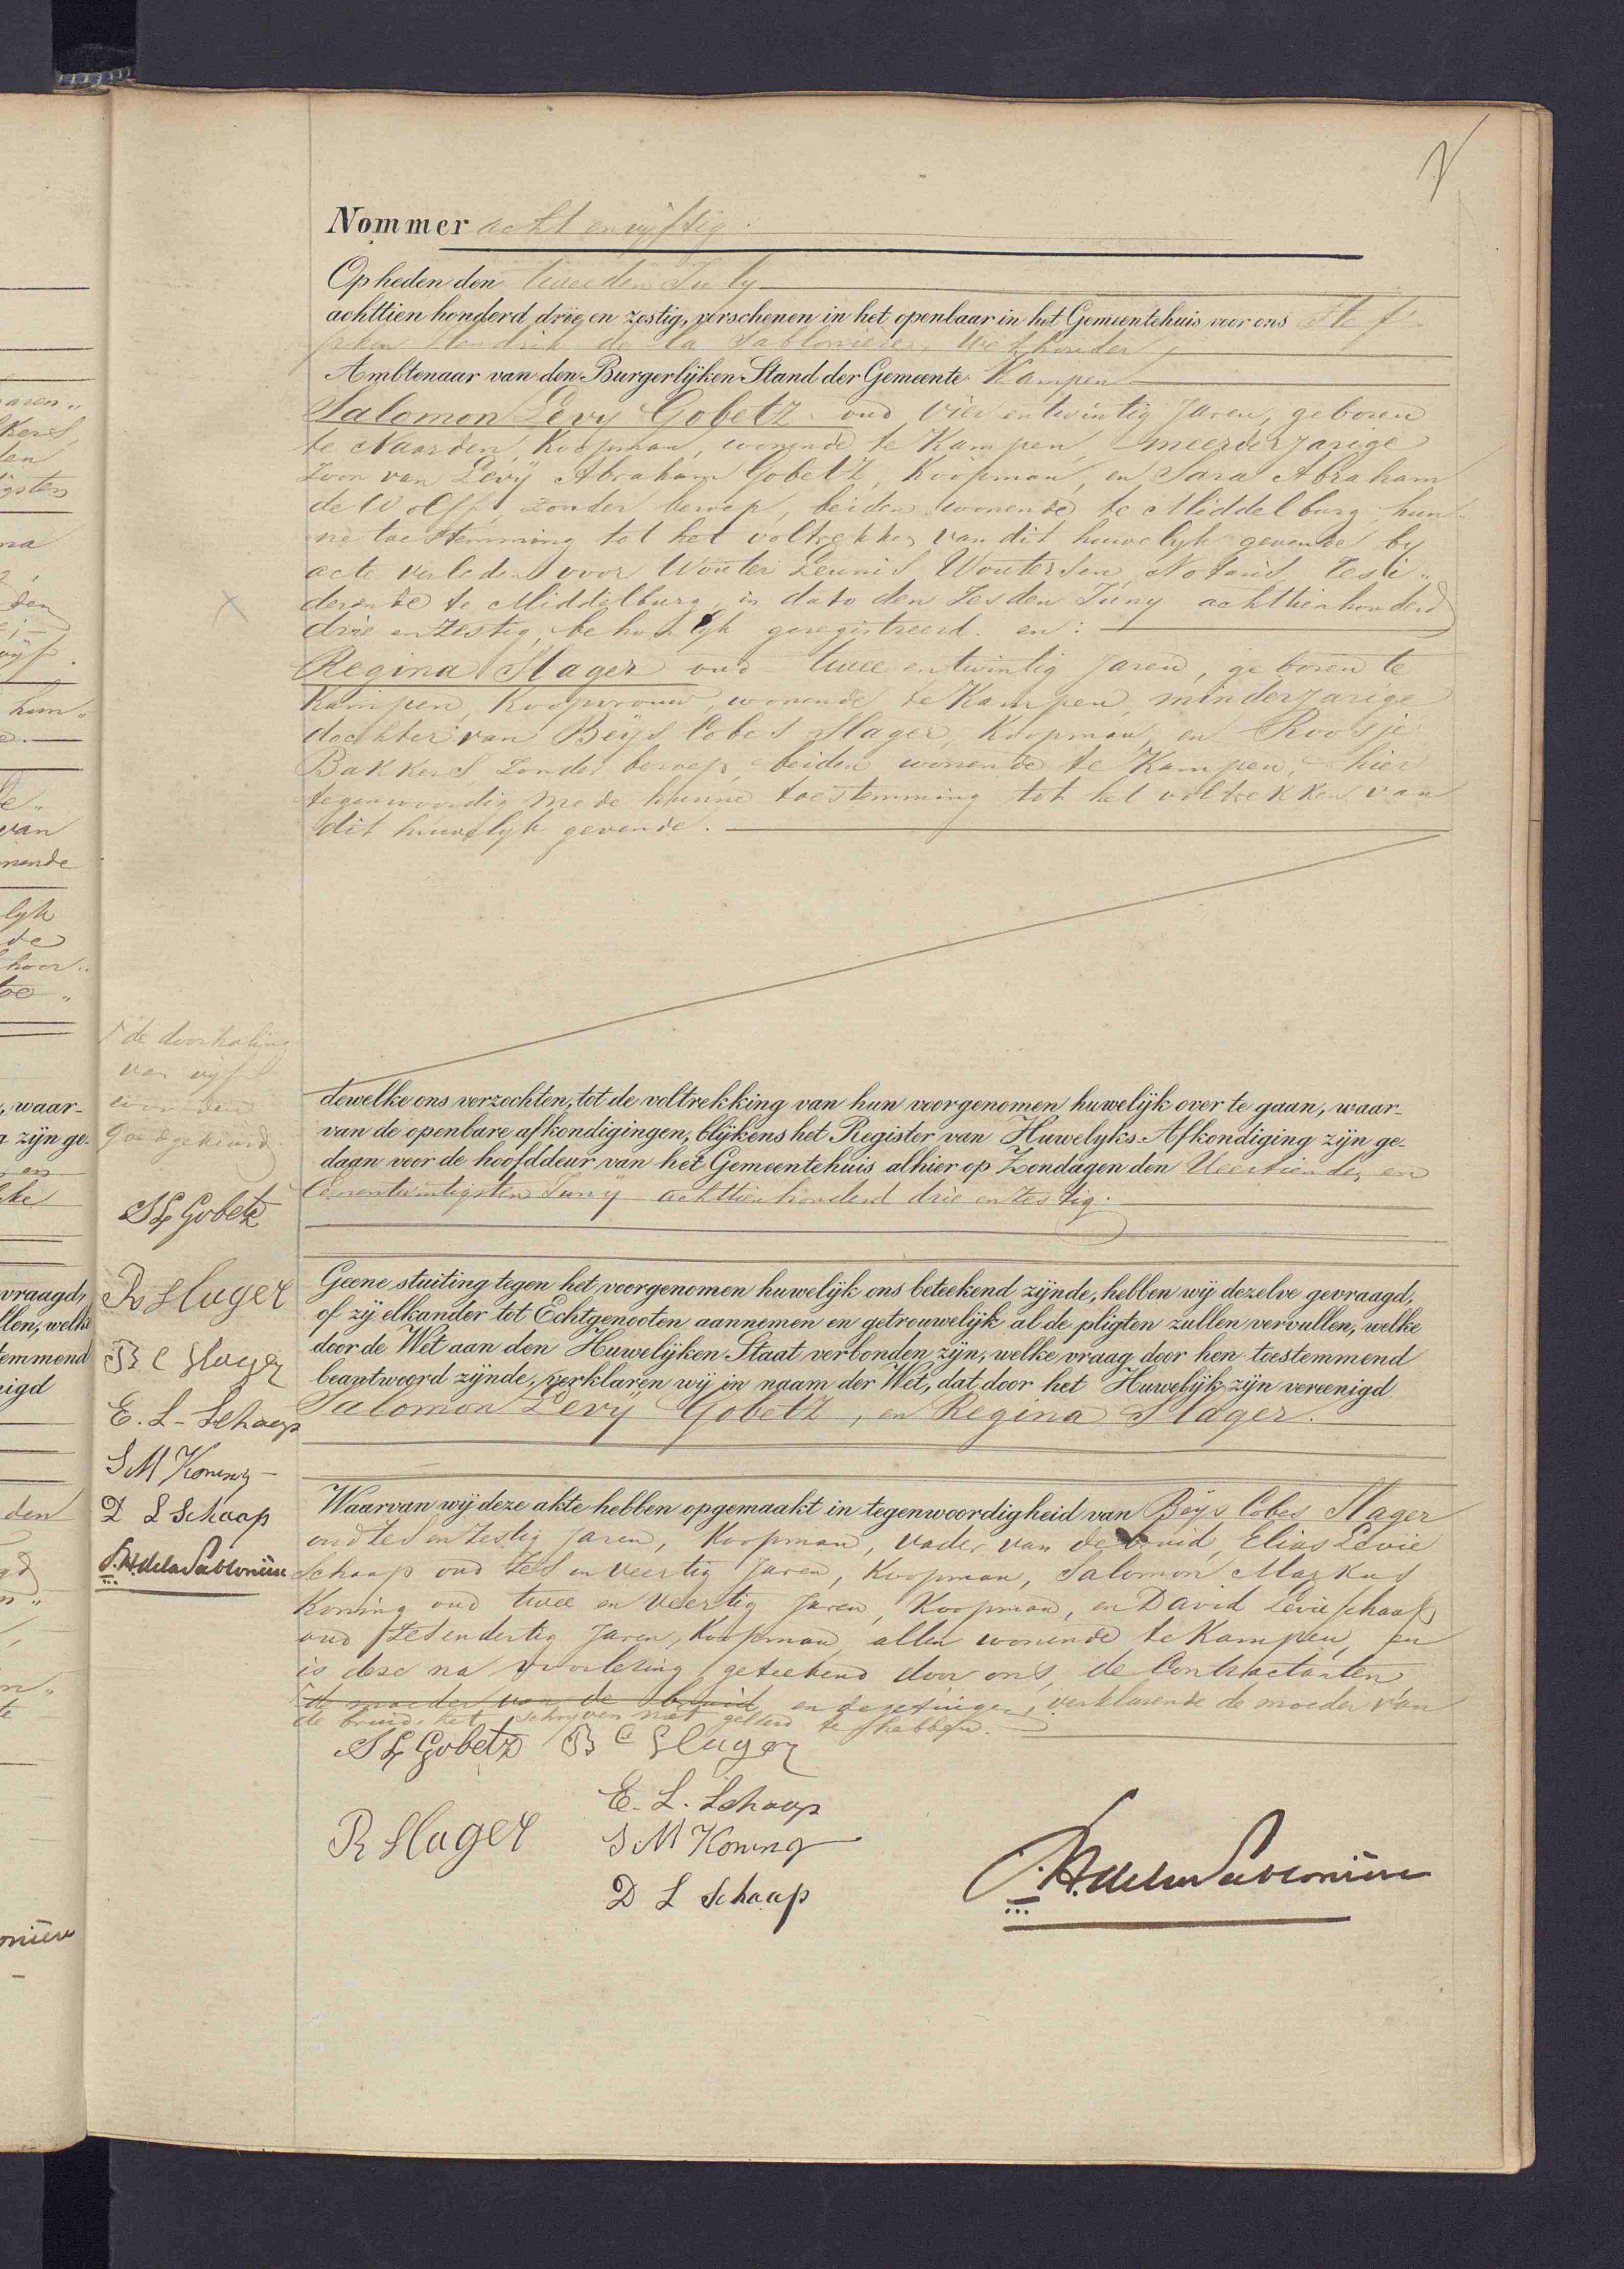 Nommer acht en vijftig.
Op heden den tweeden July
achttien honderd drie en zestig, verschenen in het openbaar in het Gemeentehuis voor ons Ste-
phen Hendrik de la Sabloniere, Wethouder,
Ambtenaar van den Burgerlijken Stand der Gemeente Kampen
Salomon Levy Gobetz oud vier entwintig Jaren, geboren
te Naarden, Koopman, wonende te Kampen, meerderjarige
Zoon van Levÿ Abraham Gobetz, Koopman, en Sara Abraham
de Wolff, zonder beroep, beiden wonende te Middelburg, hun„
ne toestemming tot het voltrekken van dit huwelyk gevende by
acte verleden voor Wouter Leunis Woutersen, Notaris resi„
derende te Middelburg in dato den Zesden Juny achttienhonderd
drie en zestig, behoorlyk geregistreerd. en:
Regina Slager oud twee entwintig Jaren, geboren te
Kampen, Koopvrouw, wonende te Kampen, minderjarige
dochter van Beijs Cobes Slager, Koopman, en Roosje
Bakkers, Zonder beroep, beiden wonende te Kampen, hier
tegenwoordig mede hunne toestemming tot het voltrekken van
dit huwelyk gevende.
de doorhaling
van vijf
woorden
Goedgekeurd
dewelke ons verzochten, tot de voltrekking van hun voorgenomen huwelijk over te gaan, waar-
van de openbare afkondigingen, blijkens het Register van Huwelyks-Afkondiging zijn ge-
daan voor de hoofddeur van het Gemeentehuis alhier op Zondagen den Veertienden en
Eenentwintigsten Junij achttienhonderd drie en zestig.
S L Gobetz
R Slager
B C Slager
E. L. Schaap
S M Koning
D L Schaap
S.H. de la Sablonière
Geene stuiting tegen het voorgenomen huwelijk ons beteekend zijnde, hebben wij dezelve gevraagd,
of zij elkander tot Echtgenooten aannemen en getrouwelijk al de pligten zullen vervullen, welke
door de Wet aan den Huwelijken Staat verbonden zijn, welke vraag door hen toestemmend
beantwoord zijnde, verklaren wij in naam der Wet, dat door het Huwelijk zijn vereenigd
Salomon Levÿ Gobetz, en Regina Slager.
Waarvan wij deze akte hebben opgemaakt in tegenwoordigheid van Beijs Cobes Slager
oud zes en zestig Jaren, Koopman, vader van de bruid, Elias Levie
Schaap oud zes en veertig Jaren, Koopman, Salomon Markus
Koning oud twee en veertig Jaren, Koopman, en David Levie Schaap
oud zes en dertig Jaren, Koopman, allen wonende te Kampen, en
is deze na voorlezing geteekend door ons, de Contractanten
de moeder van de bruid en de getuigen, verklarende de moeder van
de bruid, het schryven niet geleerd te hebben.
S L Gobetz B C Slager
E. L. Schaap
R Slager S M Koning
D L Schaap
S.H. de la Sablonière